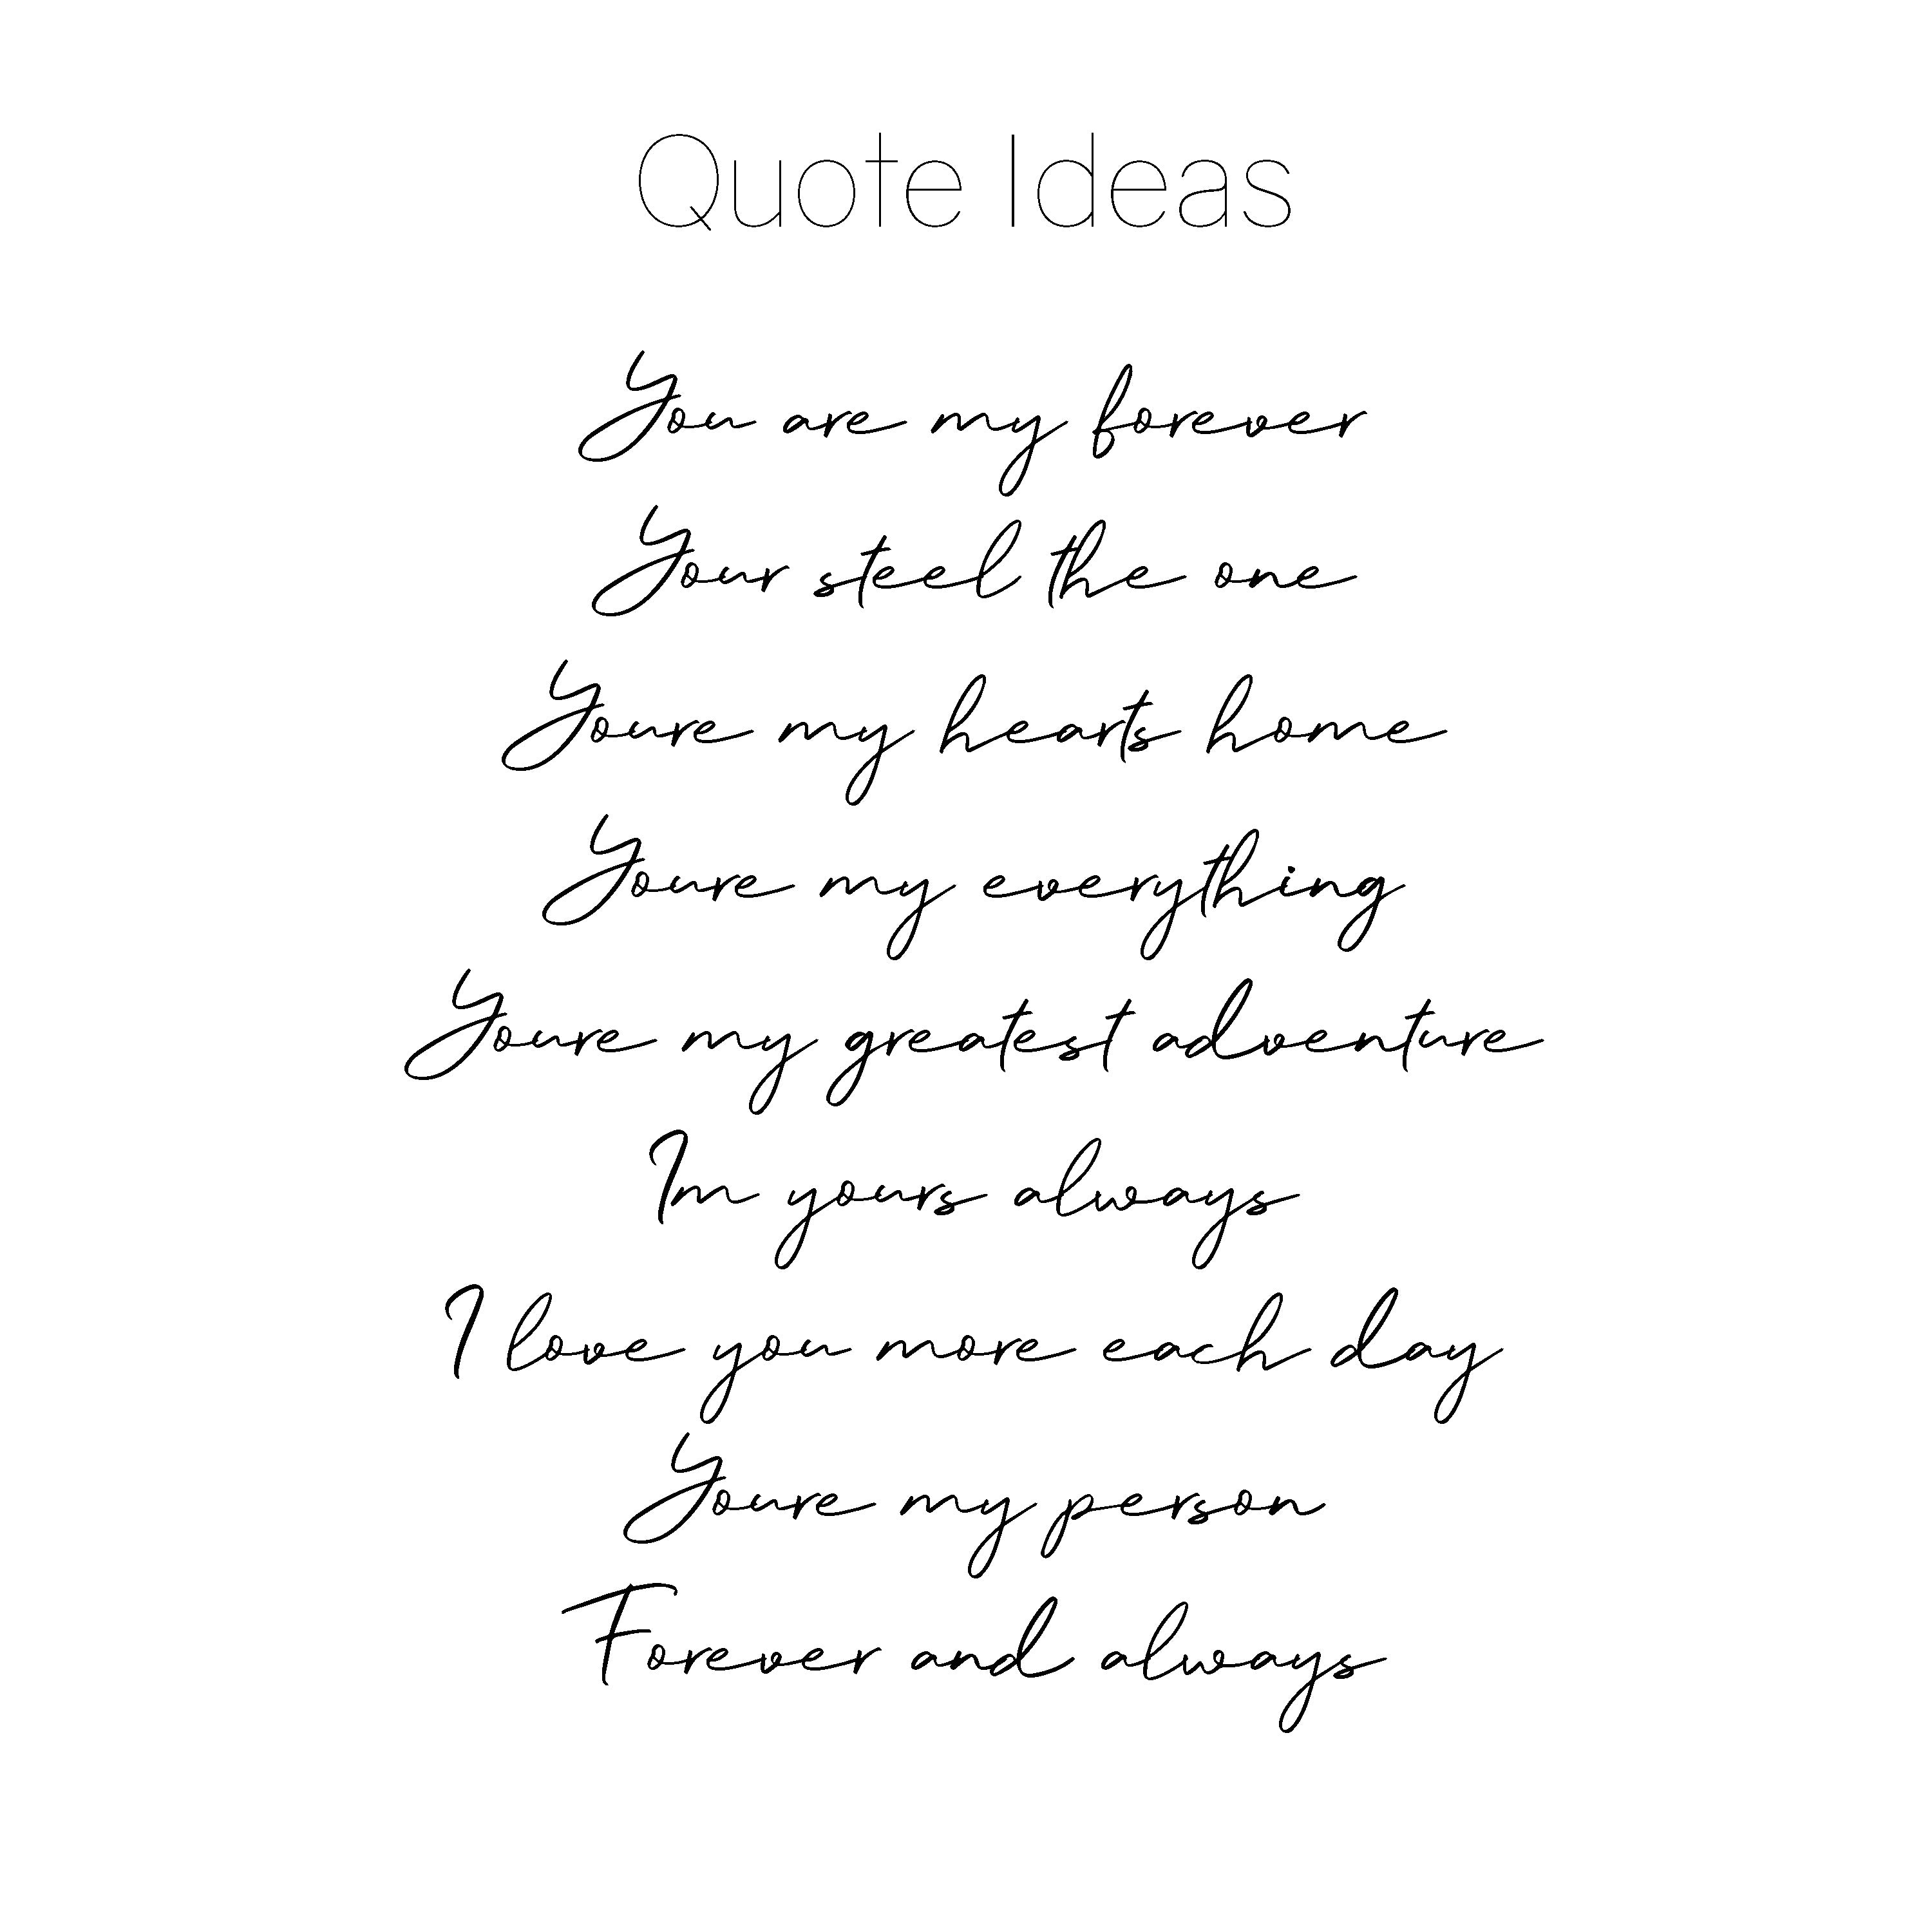 Quote Ideas
You are my forever
Your steel the one
Youre my hearts home
Youre my everything
Youre my greatest adventure
Im yours always
I love you more each day
Youre my person
Forever and always